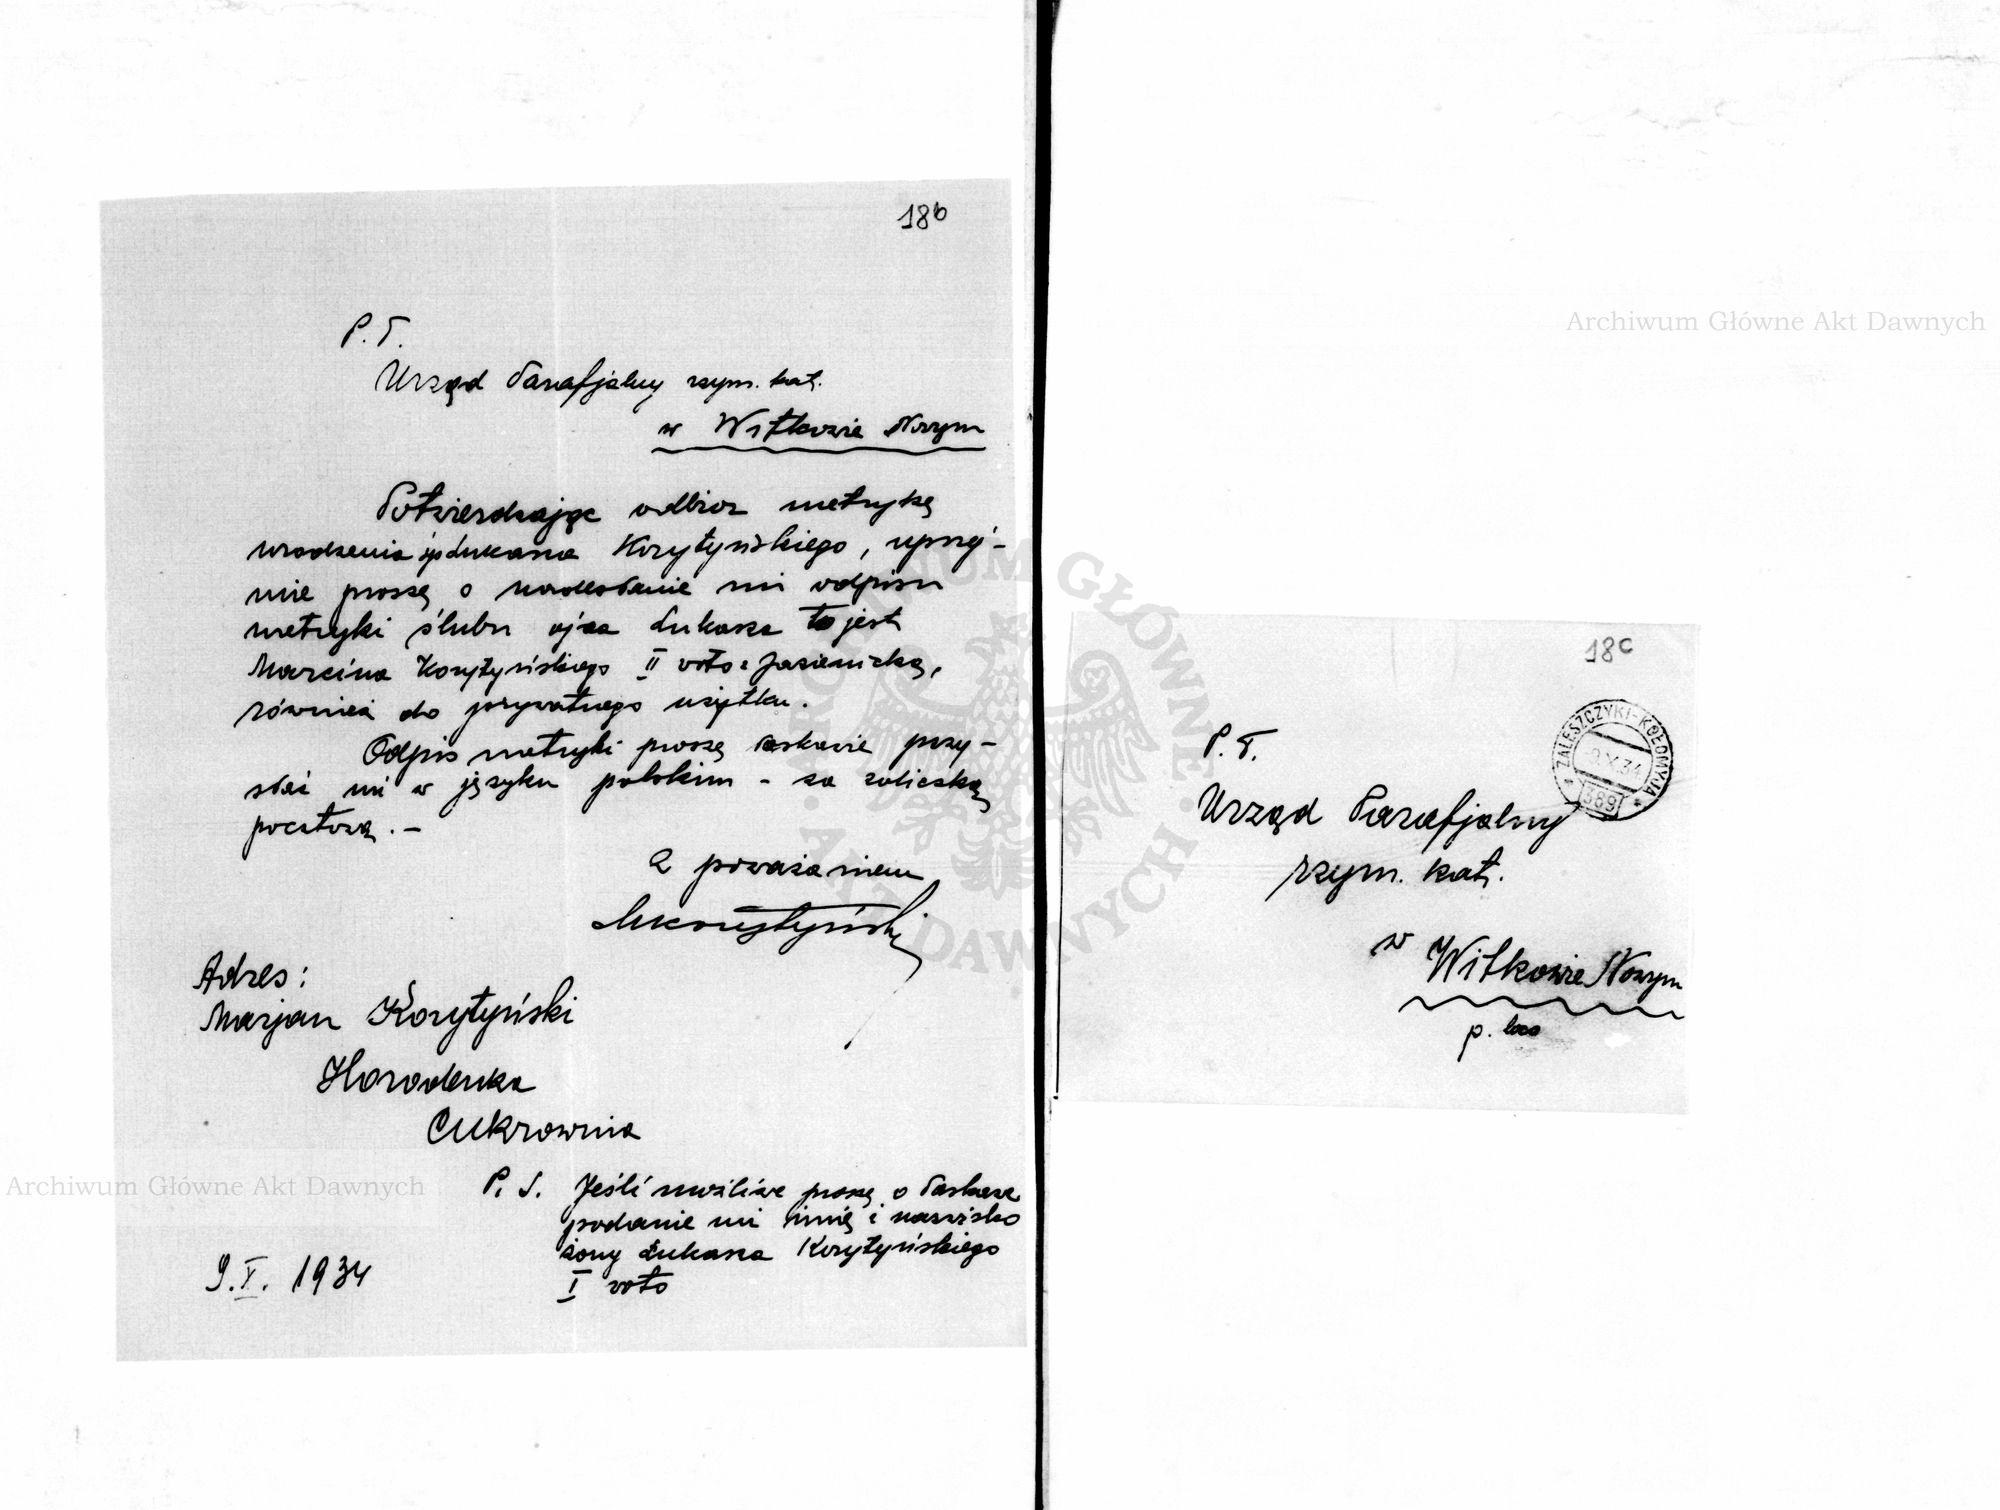 18b
P. T.
Urząd Parafjalny rzym. kat.
w Witkowie Nowym
Potwierdzając odbiór metrykę
urodzenia śp Łukasza Korytyńskiego, uprzej-
mie proszę o nadesłanie mi odpisu
metryki ślubu ojca Łukasza to jest
Marcina Korytyńskiego II voto z Jasienicką,
również do prywatnego użytku.
Odpis metryki proszę łaskawie przy-
słać mi w języku polskim - za zaliczką
pocztową. -
Z poważaniem
MKorytyński
Adres:
Marjan Korytyński
Horodenka
Cukrownia
P. S. Jeśli możliwe proszę o łaskawe
podanie mi imię i nazwisko
żony Łukasza Korytyńskiego
I voto
9. X. 1934
Archiwum Główne Akt Dawnych
18c
ZALESZCZYKI-KOŁOMYJA
9.X.34
389
P. T.
Urząd Parafjalny
rzym. kat.
w Witkowie Nowym
p. loco
Archiwum Główne Akt Dawnych
ARCHIWUM GŁÓWNE AKT DAWNYCH